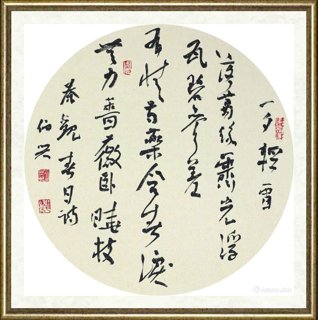 一夕輕雷
落萬絲霽光浮
瓦碧參差
有情芍藥含春淚
無力薔薇卧曉枝
秦觀春日詩